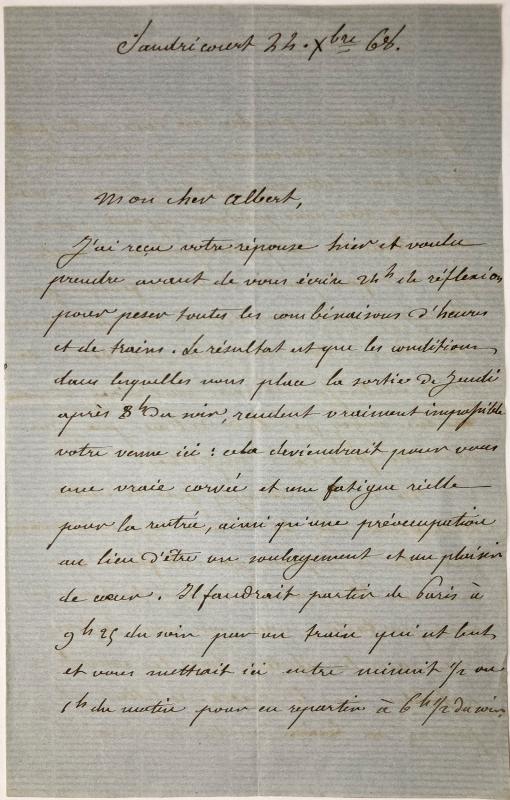 Sandricourt 22. Xbre 68.
Mon cher Albert,
J'ai reçu votre réponse hier et voulu
prendre avant de vous écrire 24h de réflexion
pour peser toutes les combinaisons d'heures
et de trains. Le résultat est que les conditions
dans lesquelles nous place la sortie de Jeudi
après 8h du soir, rendent vraiment impossible
votre venue ici : cela deviendrait pour vous
une vraie corvée et une fatigue réelle
pour la rentrée, ainsi qu'une préoccupation
au lieu d'être un soulagement et un plaisir
de cœur. Il faudrait partir de Paris à
9h 25 du soir par un train qui est lent
et vous mettrait ici entre minuit 1/2 ou
1h du matin pour en repartir à 6h 1/2 du soir